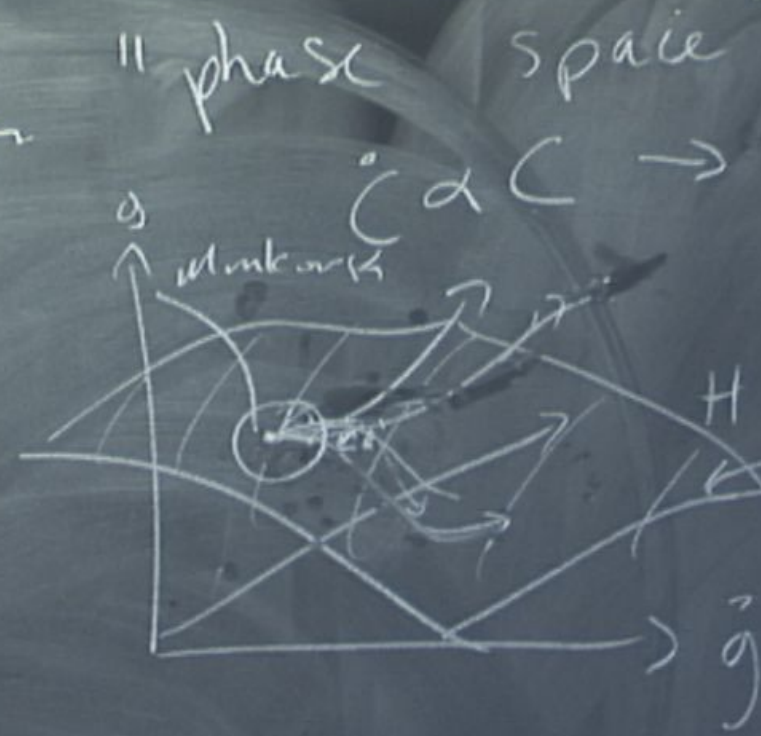 " phase space
Ċ ∝ C →
g
Minkowsk
H
ġ